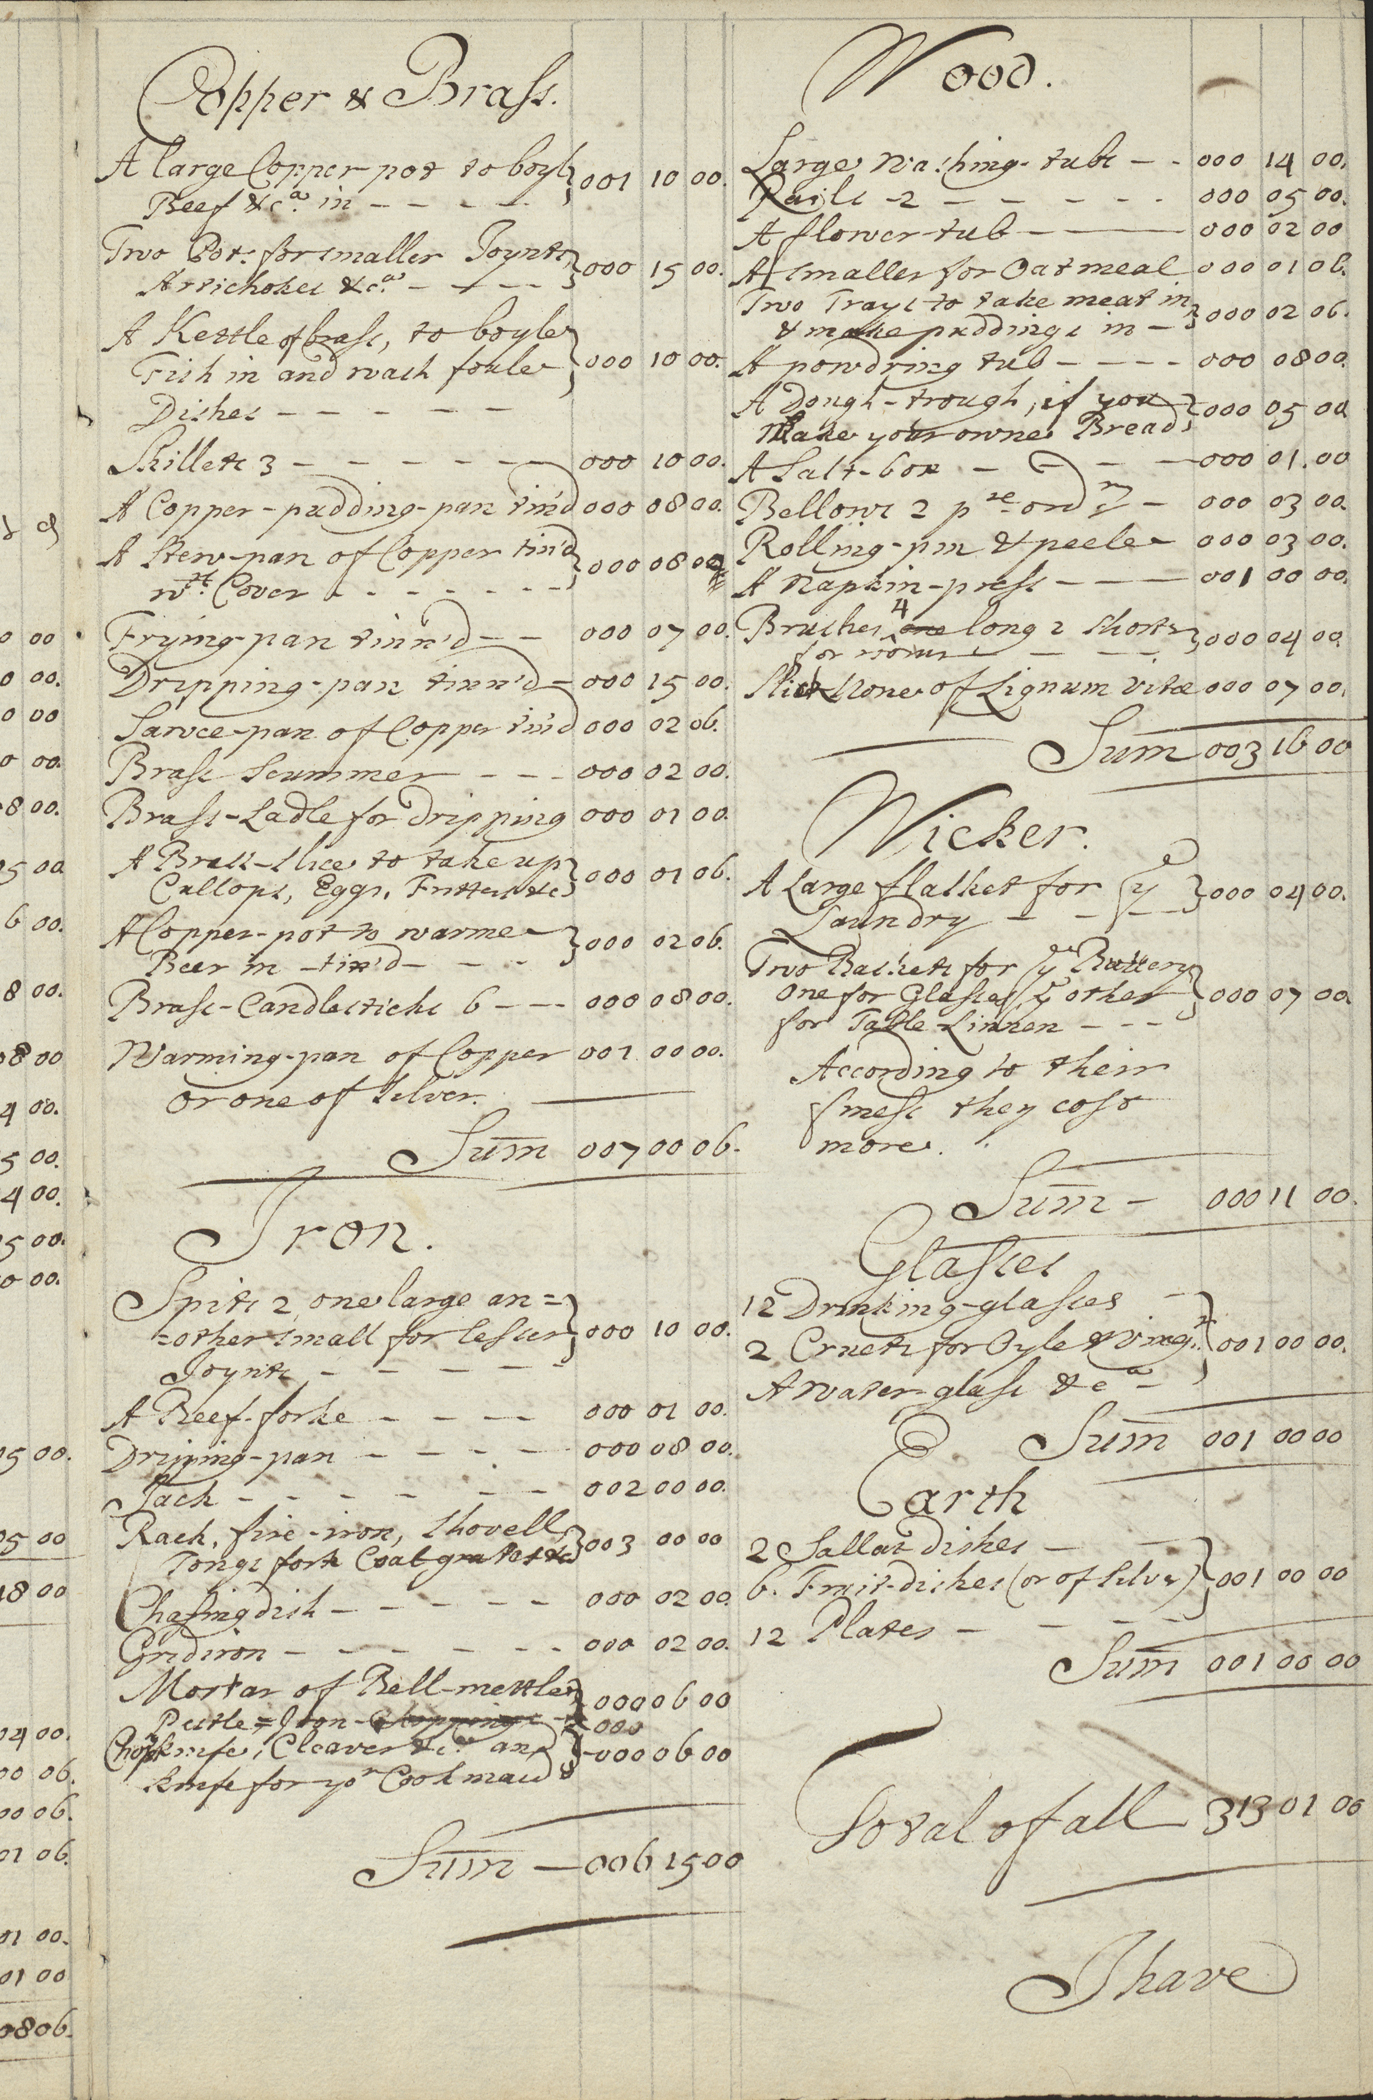 Copper & Brass.
A large Copper pot to boyle 001 10 00.
Beef &ca. in - - - - -
Two Pots for smaller Joynts 000 15 00.
Artichokes &ca. - - - -
A Kettle of brass, to boyle
Fish in and wash foule 000 10 00.
Dishes - - - - - -
Skillets 3 - - - - - - 000 10 00.
A Copper-pudding-pan tin'd 000 08 00.
A Stew-pan of Copper tin'd 000 08 00
wth. Cover - - - - - - -
Frying-pan tinn'd - - 000 07 00.
Dripping-pan tinn'd - 000 15 00.
Sawce-pan of Copper tin'd 000 02 06.
Brass Scummer - - - 000 02 00.
Brass-Ladle for dripping 000 01 00.
A Brass-slice to take up 000 01 06.
Collops, Eggs, Fritters &c
A Copper-pot to warme 000 02 06.
Beer in - tin'd - - - -
Brass-Candlesticks 6 - - - 000 08 00.
Warming-pan of Copper 001 00 00.
or one of silver.
Sum 007 00 06.
Iron.
Spits 2, one large an=
=other small for lesser 000 10 00.
Joynts - - - - - -
A Beef-forke - - - - 000 01 00.
Dripping-pan - - - - - 000 08 00.
Jack - - - - - - - 002 00 00.
Rack, fire-iron, shovell 003 00 00
Tongs fork Coal grate &c
Chafing dish - - - - - 000 02 00.
Gridiron - - - - - - - 000 02 00.
Mortar of Bell-mettle 000 06 00
Pestle = Iron - Chopping 000
Chopknife, Cleaver &ca. and 000 06 00
knife for yor Cookmaid
Sum - 006 15 00
Wood.
Large washing-tubs - - 000 14 00.
Pails - 2 - - - - - - 000 05 00.
A flower-tub - 000 02 00
A smaller for Oatmeal 000 01 06.
Two Trays to take meat in 000 02 06.
& make puddings in -
A powdring tub - - - - 000 08 00.
A Dough-trough, if you 000 05 00
Make your owne Bread
A Salt-box - - - - 000 01.00
Bellows 2 pre ordry - 000 03 00.
Rolling-pin & peele - 000 03 00.
A Napkin-press - 001 00 00.
4
Brushes, one long 2 shorts 000 04 00.
for rooms - - -
Slick stone of Lignum vitæ 000 07 00.
Sum 003 16 00
Wicker.
A Large flasket for ye 000 04 00.
Laundry - - - -
Two Baskets for ye Buttery
one for Glasses ye other 000 07 00.
for Table-Linnen - - -
According to their
finess they cost
more.
Sum - 000 11 00.
Glasses
12 Drinking-glasses -
2 Cruets for Oyle & Vinegr. 001 00 00.
A water-glass &ca -
Sum 001 00 00
Earth
2 Sallat dishes - -
6. Fruit-dishes (or of silver) 001 00 00
12 Plates - - - -
Sum 001 00 00
Total of all 313 01 00
I have
0 00
0 00.
0 00
0 00.
8 00.
5 00
6 00.
8 00.
08 00
4 00.
5 00.
4 00.
5 00.
0 00.
15 00.
05 00
18 00
04 00.
00 06.
00 06.
01 06.
01 00.
01 00
08 06.